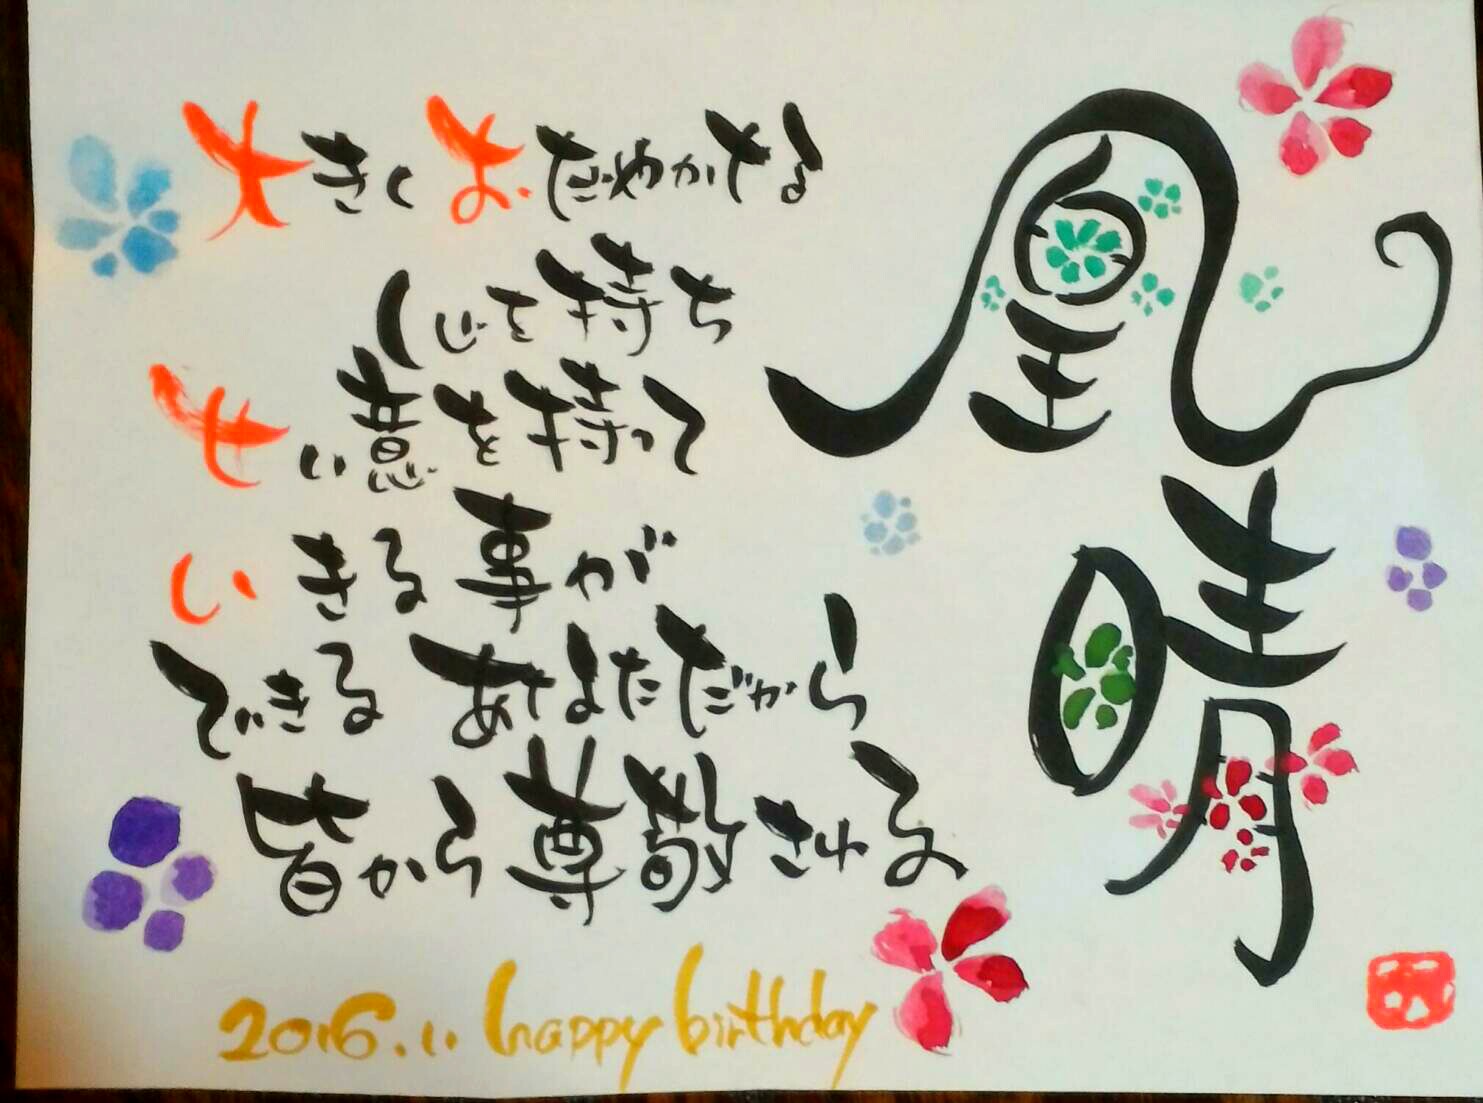 凰晴
大きくおだやかな
心を持ち
せい意を持って
いきる事が
できるあなただから
皆から尊敬される
2016.11. happy birthday